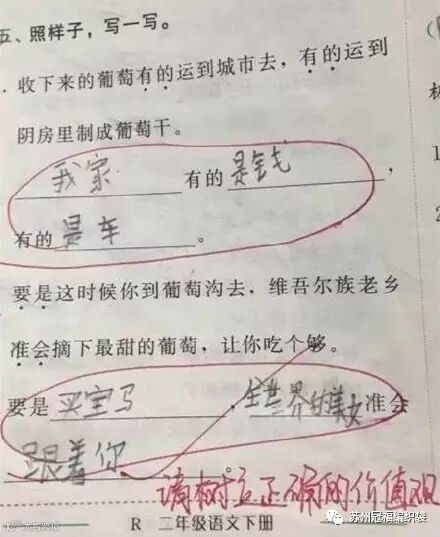 五、照样子，写一写。
收下来的葡萄有的运到城市去，有的运到
阴房里制成葡萄干。
我家有的是钱
有的是车。
要是这时候你到葡萄沟去，维吾尔族老乡
准会摘下最甜的葡萄，让你吃个够。
要是买宝马，全世界的美女准会
跟着你。
请树立正确的价值观
R 二年级语文下册
苏州冠福编织袋